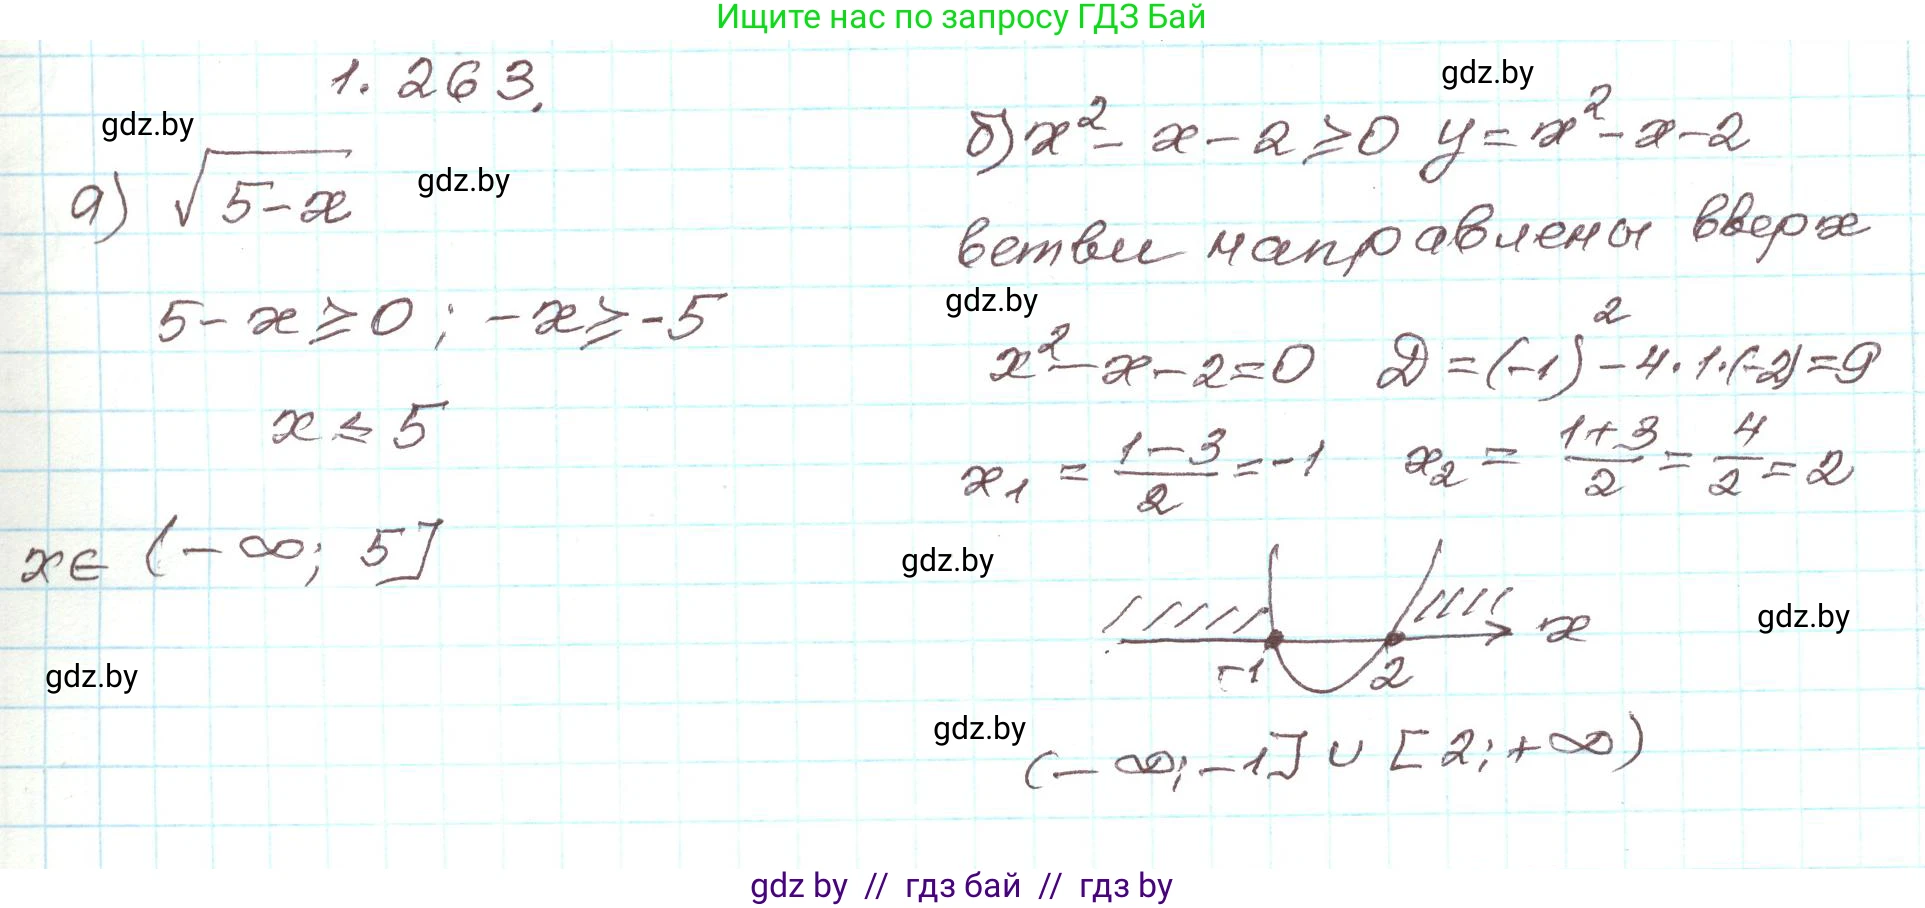 Ищите нас по запросу ГДЗ Бай
1.263.
gdz.by
а) √(5-x)
gdz.by
5-x≥0; -x≥-5
x≤5
x∈ (-∞; 5]
gdz.by
gdz.by
б) x²-x-2≥0 y=x²-x-2
ветви направлены вверх
gdz.by
x²-x-2=0 D=(-1)²-4·1·(-2)=9
x₁ = (1-3)/2 = -1 x₂ = (1+3)/2 = 4/2 = 2
gdz.by
x
gdz.by
-1 2
gdz.by
(-∞; -1] ∪ [2; +∞)
gdz by // гдз бай // гдз by